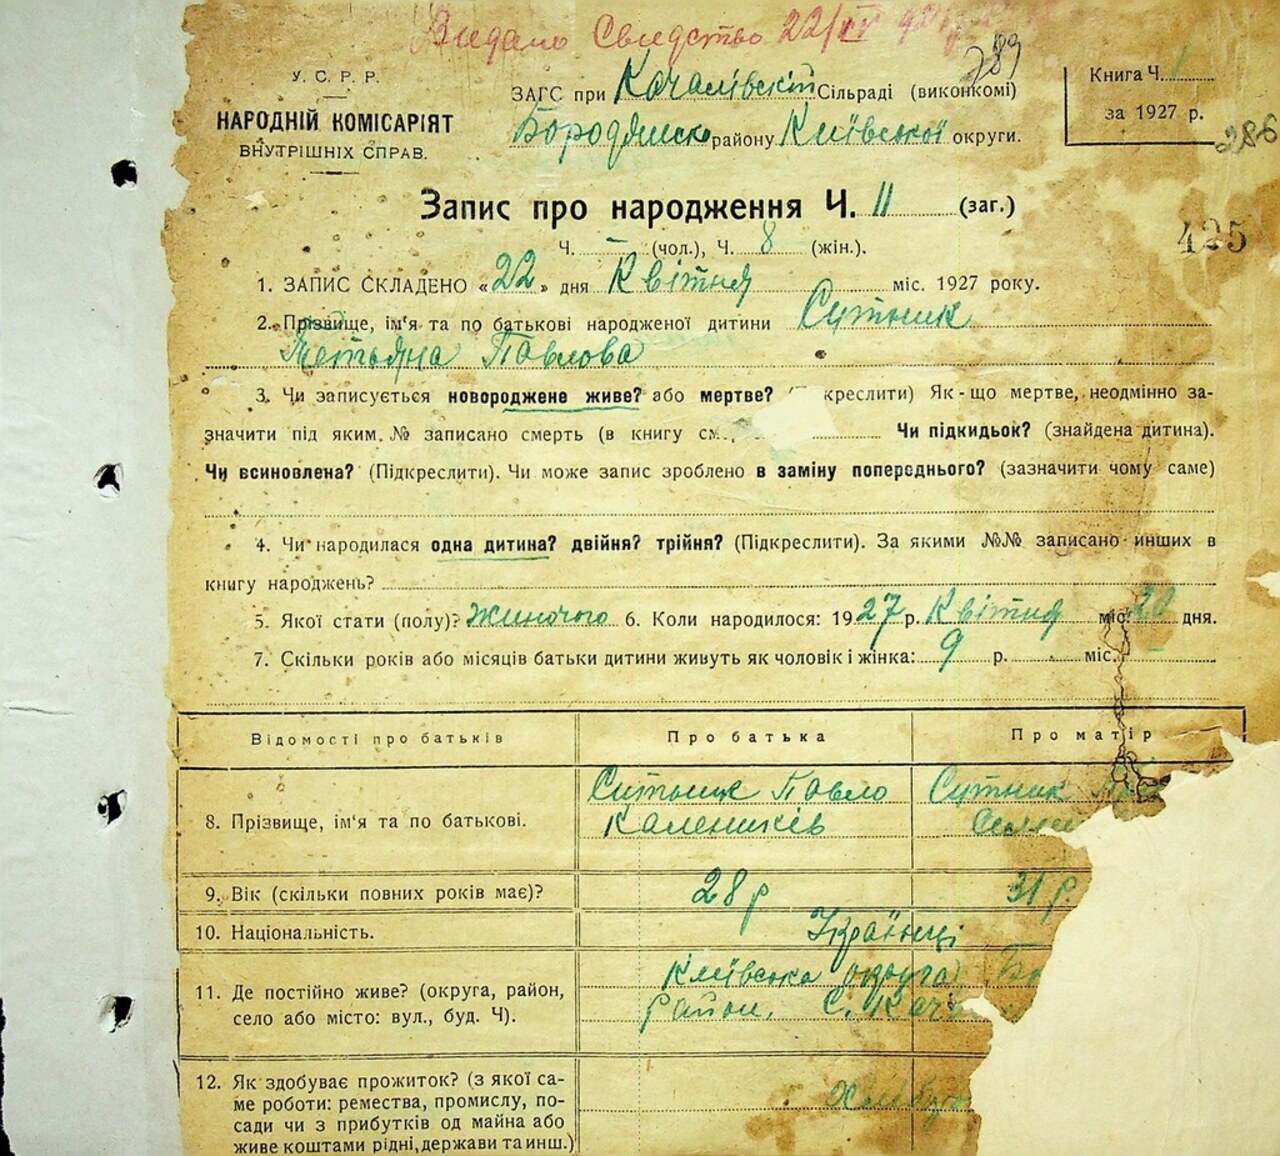 Видано Свидетство 22/IV
У. С. Р. Р.
НАРОДНІЙ КОМІСАРІЯТ
ВНУТРІШНІХ СПРАВ.
789
ЗАГС при Качалівскій Сільраді (виконкомі)
Бородянско району Київської округи.
Книга Ч. 1
за 1927 р.
286
Запис про народження Ч. 11 (заг.)
425
Ч. – (чол.), Ч. 8 (жін.).
1. ЗАПИС СКЛАДЕНО «22» дня Квітня міс. 1927 року.
2. Прізвище, ім'я та по батькові народженої дитини Ситник
Тетьяна Павлова
3. Чи записується новороджене живе? або мертве? креслити) Як-що мертве, неодмінно за-
значити під яким № записано смерть (в книгу см Чи підкидьок? (знайдена дитина).
Чи всиновлена? (Підкреслити). Чи може запис зроблено в заміну попереднього? (зазначити чому саме)
4. Чи народилася одна дитина? двійня? трійня? (Підкреслити). За якими №№ записано инших в
книгу народжень?
5. Якої стати (полу)? Жиночого 6. Коли народилося: 1927 р. Квітня міс. 20 дня.
7. Скільки років або місяців батьки дитини живуть як чоловік і жінка: 9 р. міс.
Відомості про батьків Про батька Про матір
8. Прізвище, ім'я та по батькові.
Ситник Павло
Калеників
Ситник
9. Вік (скільки повних років має)? 28 р 31 р.
10. Національність. Українці
11. Де постійно живе? (округа, район,
село або місто: вул., буд. Ч).
Київська округа
район. С. Кача
12. Як здобуває прожиток? (з якої са-
ме роботи: ремества, промислу, по-
сади чи з прибутків од майна або
живе коштами рідні, держави та инш.)